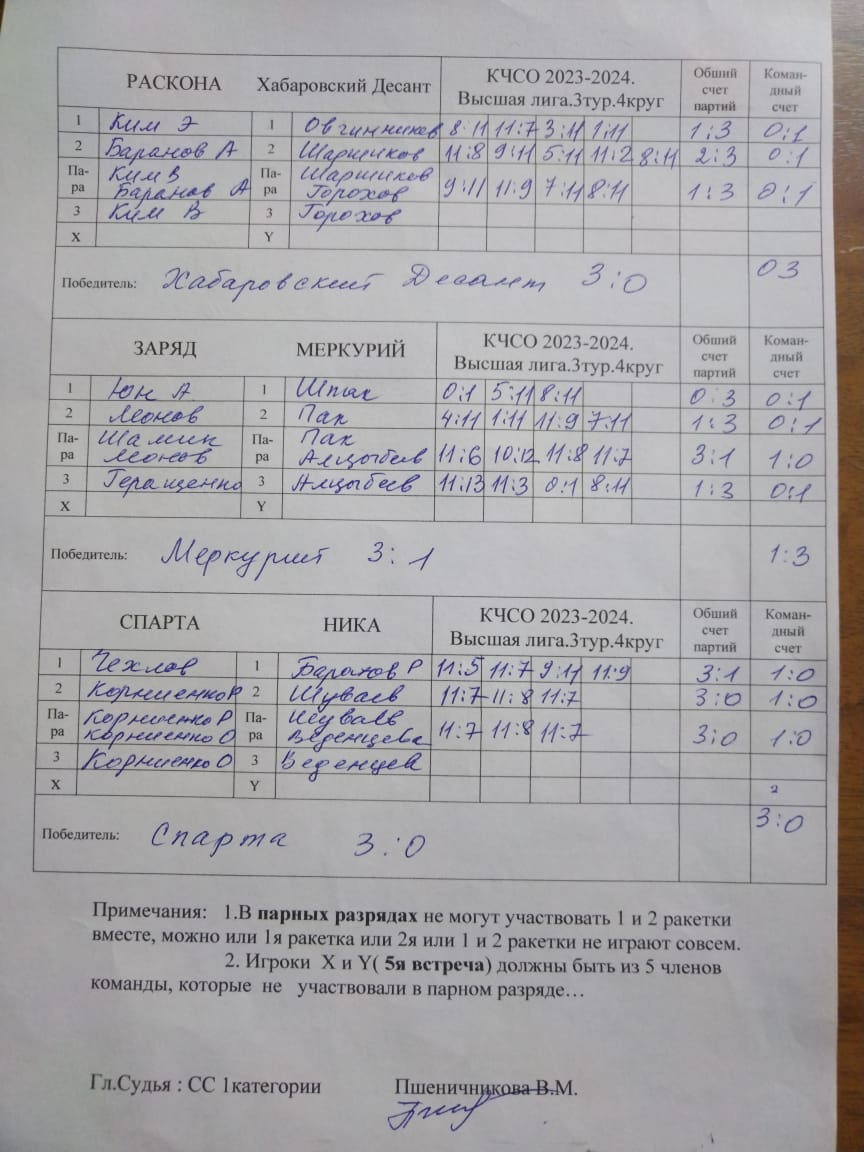 РАСКОНА Хабаровский Десант КЧСО 2023-2024. Высшая лига.3тур.4круг Общий счет партий Коман-дный счет
1 Ким Э 1 Овчинников 8:11 11:7 3:11 1:11 1:3 0:1
2 Баранов А 2 Шаршиков 11:8 9:11 5:11 11:2 8:11 2:3 0:1
Па-ра Ким В Баранов А Па-ра Шаршиков Горохов 9:11 11:9 7:11 8:11 1:3 0:1
3 Ким В 3 Горохов
X Y
Победитель: Хабаровский Десант 3:0 03
ЗАРЯД МЕРКУРИЙ КЧСО 2023-2024. Высшая лига.3тур.4круг Общий счет партий Коман-дный счет
1 Юн А 1 Шпак 0:1 5:11 8:11 0:3 0:1
2 Леонов 2 Пак 4:11 1:11 11:9 7:11 1:3 0:1
Па-ра Шамин Леонов Па-ра Пак Алцыбеев 11:6 10:12 11:8 11:7 3:1 1:0
3 Геращенко 3 Алцыбеев 11:13 11:3 0:1 8:11 1:3 0:1
X Y
Победитель: Меркурий 3:1 1:3
СПАРТА НИКА КЧСО 2023-2024. Высшая лига.3тур.4круг Общий счет партий Коман-дный счет
1 Чехлов 1 Баранов Р 11:5 11:7 9:11 11:9 3:1 1:0
2 Корниенко Р 2 Шуваев 11:7 11:8 11:7 3:0 1:0
Па-ра Корниенко Р Корниенко О Па-ра Шуваев Веденцева 11:7 11:8 11:7 3:0 1:0
3 Корниенко О 3 Веденцев
X Y
Победитель: Спарта 3:0 3:0
Примечания: 1.В парных разрядах не могут участвовать 1 и 2 ракетки
вместе, можно или 1я ракетка или 2я или 1 и 2 ракетки не играют совсем.
2. Игроки X и Y( 5я встреча) должны быть из 5 членов
команды, которые не участвовали в парном разряде…
Гл.Судья : СС 1категории Пшеничникова В.М.